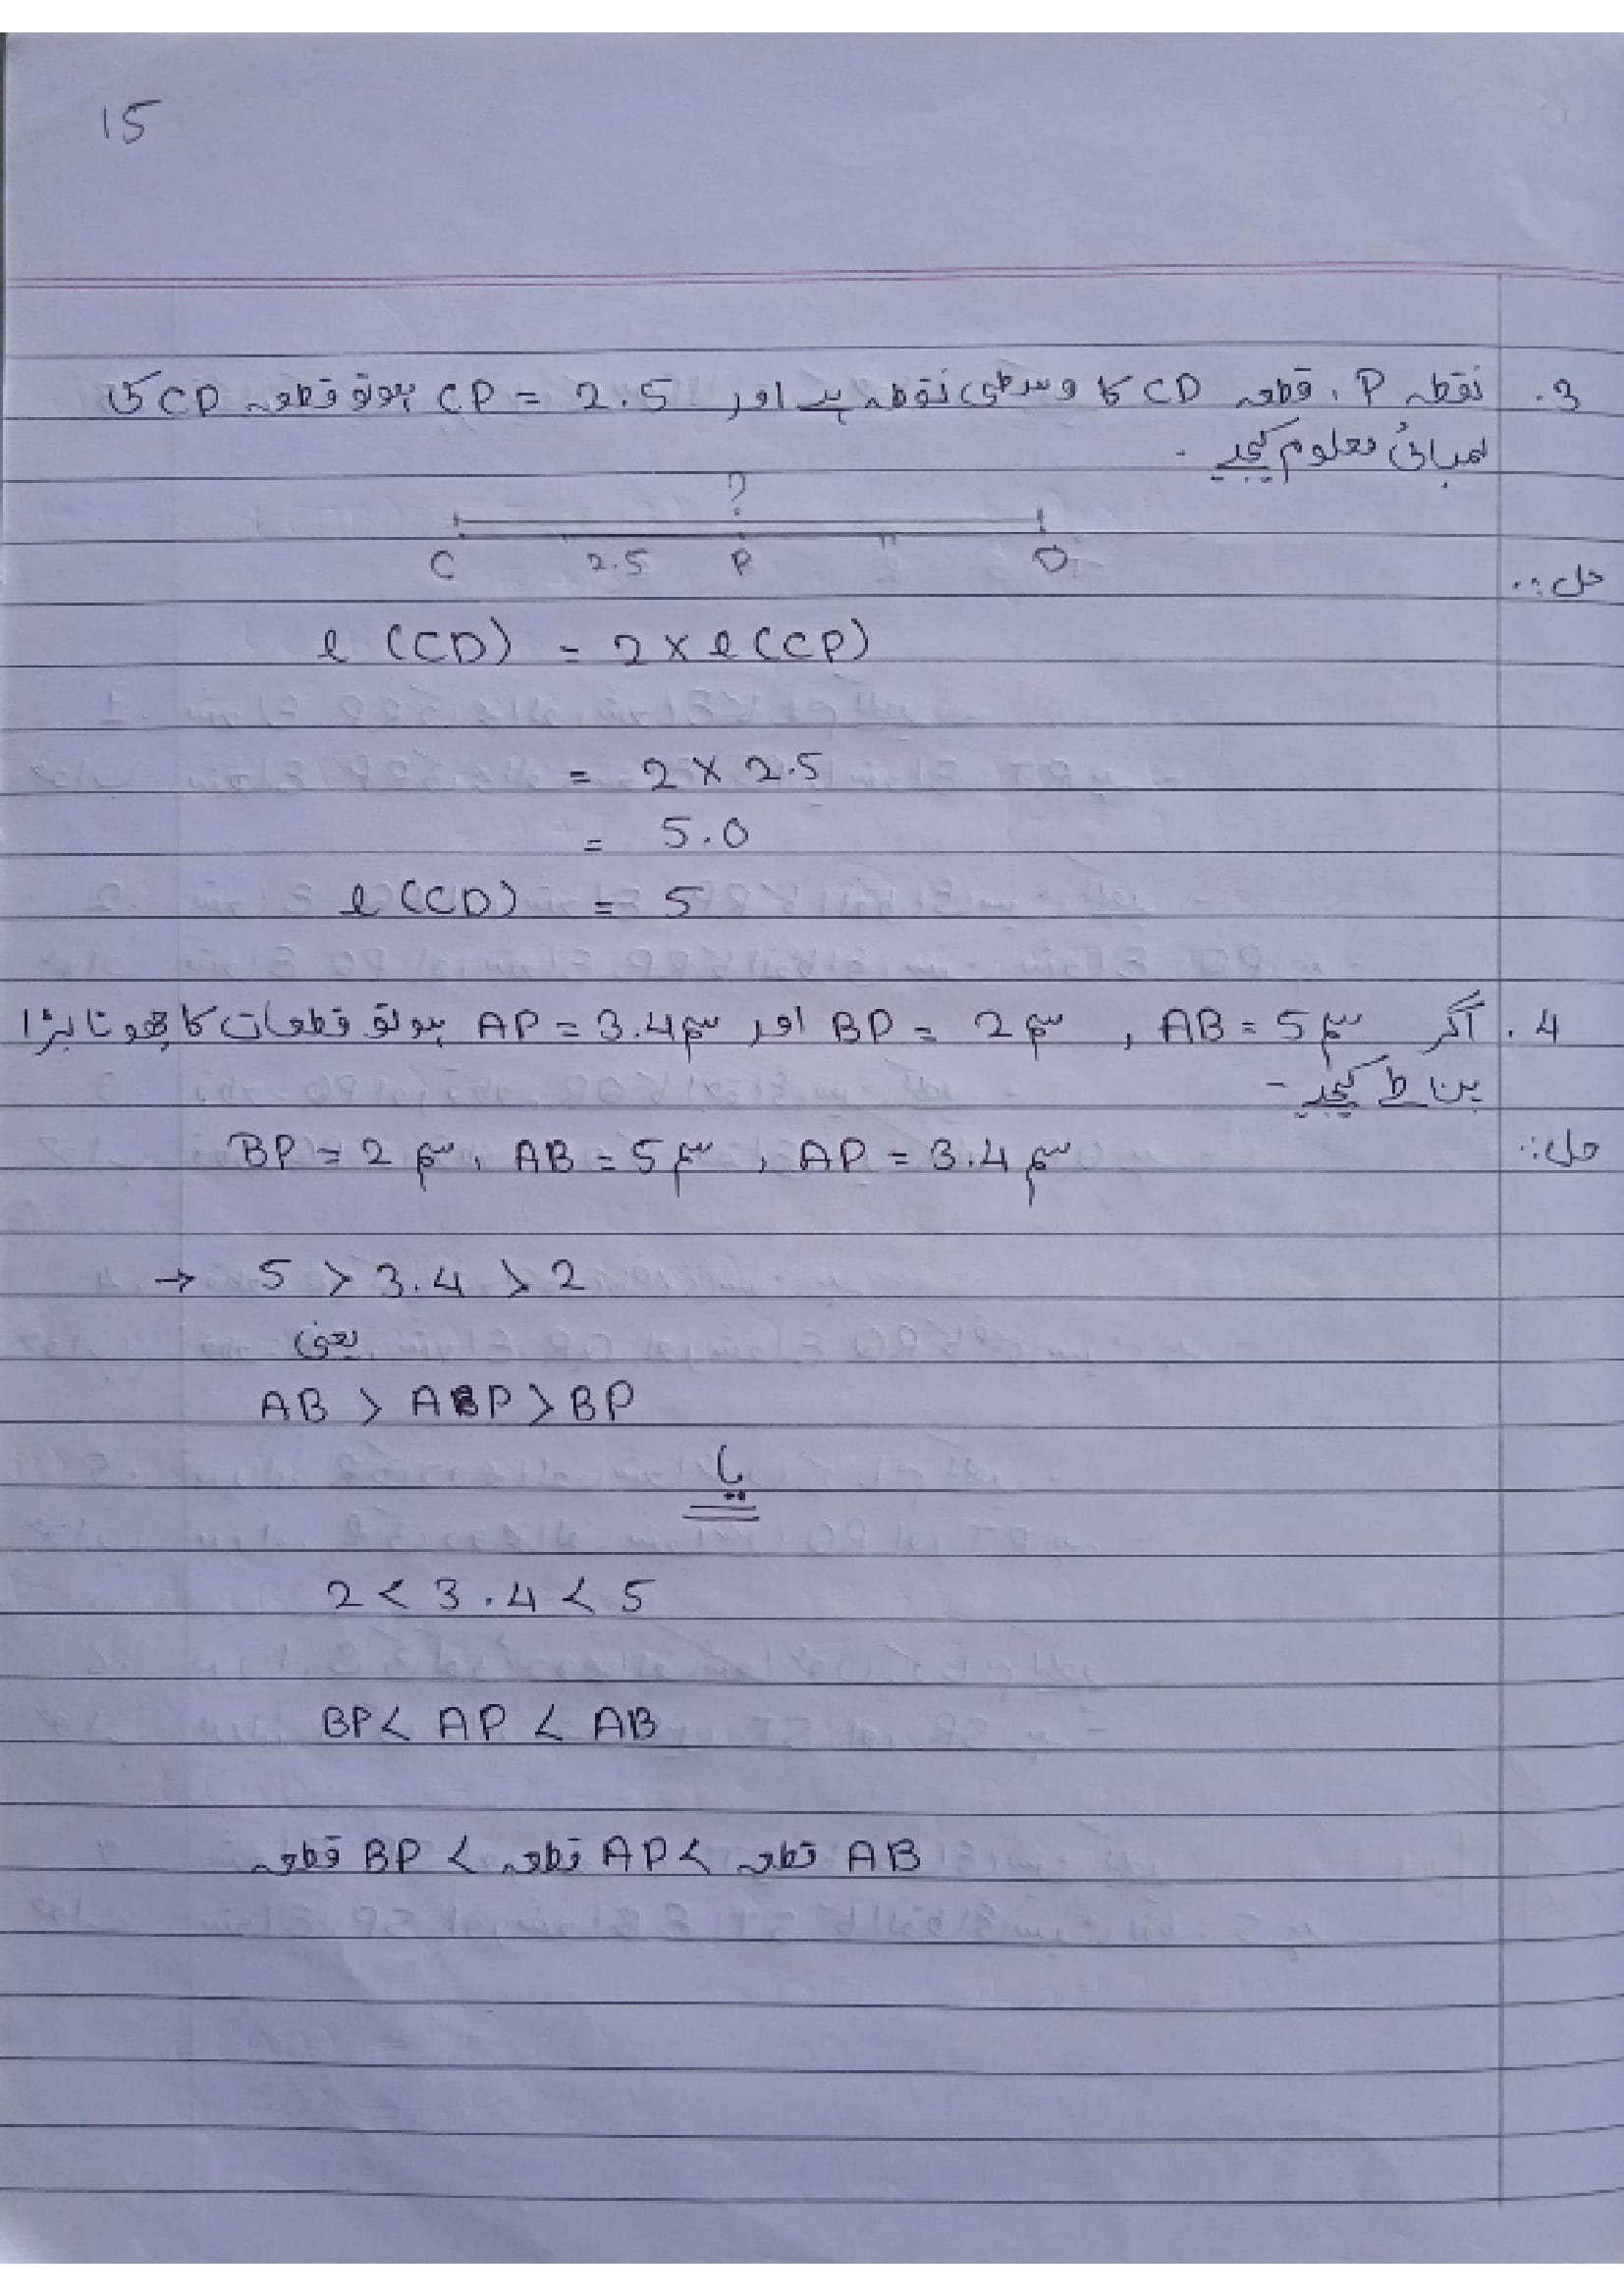 15
3. نقطہ P، قطعہ CD کا وسطی نقطہ ہے اور CP = 2.5 ہوتو قطعہ CD کی
لمبائی معلوم کیجیے ۔
?
C 2.5 P D
حل:۔
l (CD) = 2 × l (CP)
= 2 × 2.5
= 5.0
l (CD) = 5
4. اگر AB = 5 سم , BP = 2 سم اور AP = 3.4 سم ہوتو قطعات کا چھوٹا بڑا
پن طے کیجیے ۔
حل:۔
BP = 2 سم، AB = 5 سم، AP = 3.4 سم
→ 5 > 3.4 > 2
یعنی
AB > AP > BP
یا
2 < 3.4 < 5
BP < AP < AB
قطعہ BP < قطعہ AP < قطعہ AB